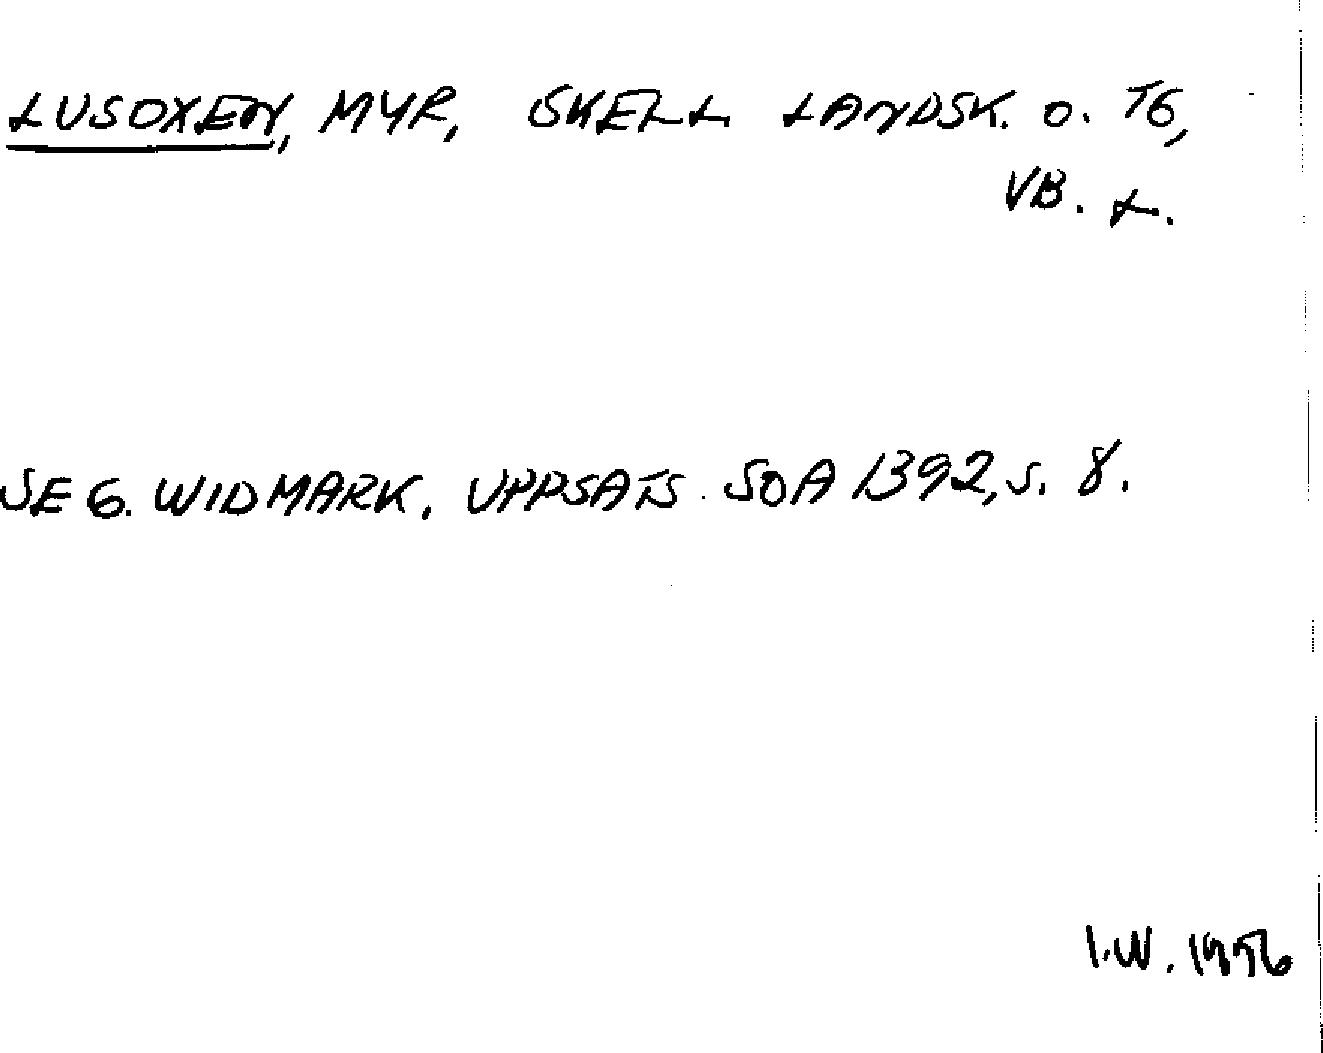 LUSOXEN, MYR, SKELL LANDSK. O. TG,
VB. L.
SE G. WIDMARK. UPPSATS. SOA 1392, S. 8.
I.W. 1976